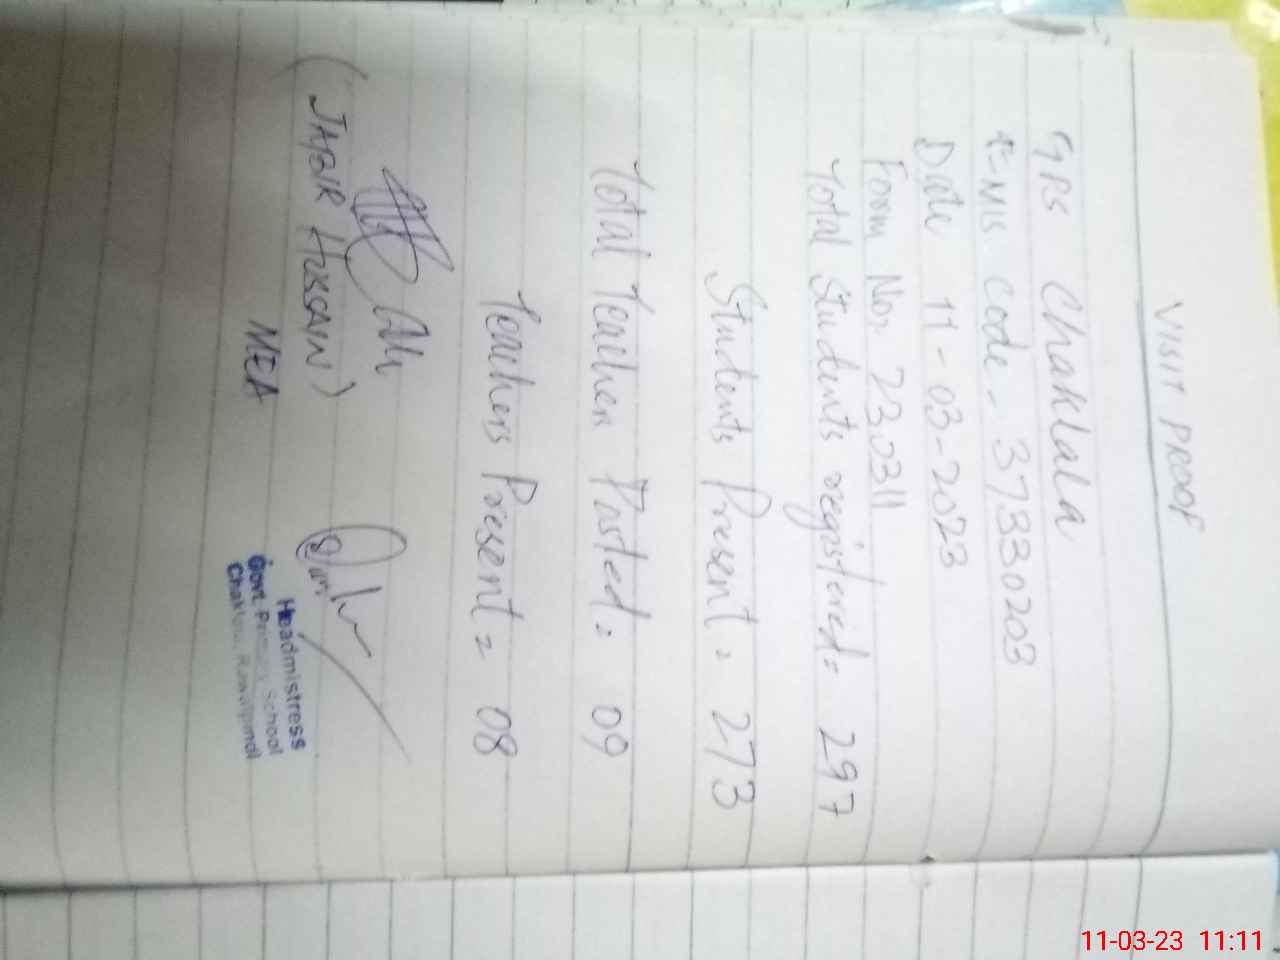 VISIT PROOF
GPS Chaklala
EMIS Code - 37330203
Date 11-03-2023
Form No= 230311
Total Students registered= 297
Students Present = 273
Total Teacher Posted= 09
Teachers Present = 08
(JABIR HUSSAIN)
MEA
Headmistress
Govt. Primary School
Chaklala, Rawalpindi
11-03-23 11:11